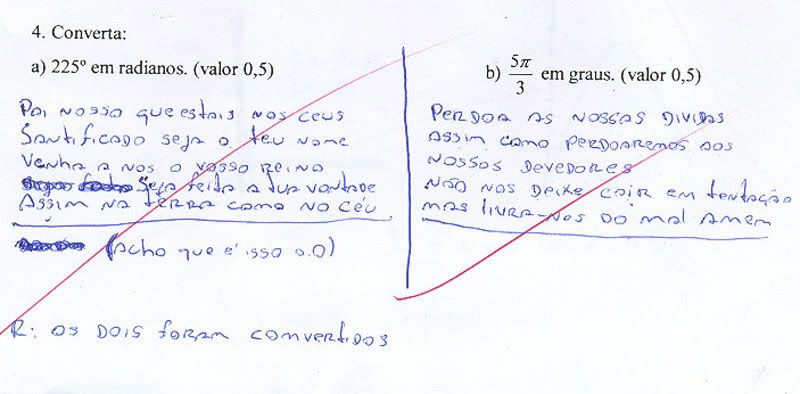 4. Converta:
a) 225º em radianos. (valor 0,5)
Pai nosso que estais nos ceus
Santificado seja o teu nome
Venha a nos o vosso Reino
Seja feita a tua vontade
Assim na terra como no céu
(Acho que é isso o.O)
b) 5π/3 em graus. (valor 0,5)
Perdoa as nossas dividas
Assim como perdoaremos aos
nossos devedores
Não nos deixe cair em tentação
mas livra-nos do mal amem
R: os dois foram comvertidos